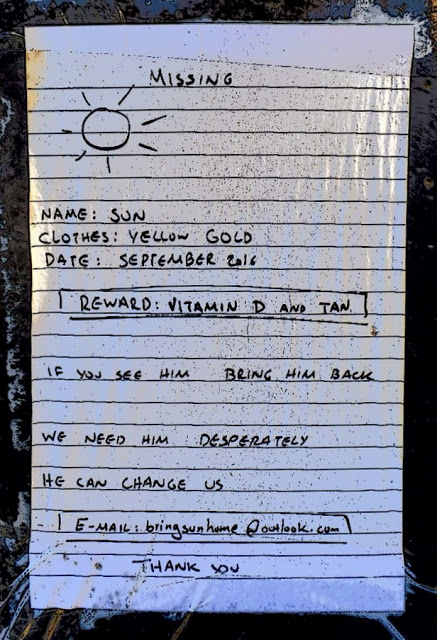 MISSING
NAME: SUN
CLOTHES: YELLOW GOLD
DATE: SEPTEMBER 2016
REWARD: VITAMIN D AND TAN.
IF YOU SEE HIM BRING HIM BACK
WE NEED HIM DESPERATELY
HE CAN CHANGE US
E-MAIL: bringsunhome@outlook.com
THANK YOU